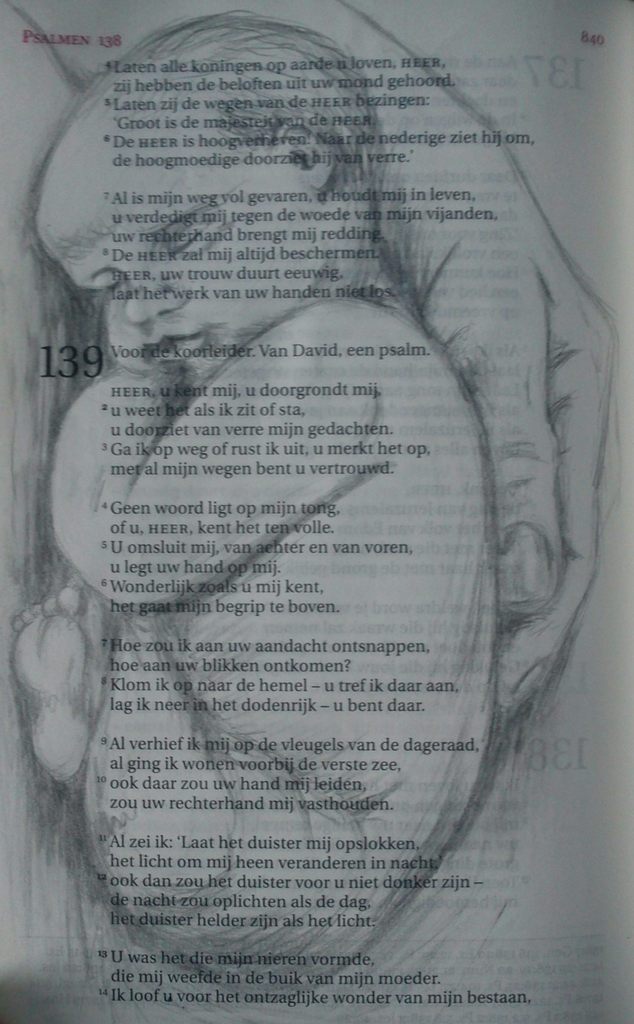 PSALMEN 138 840
⁴ Laten alle koningen op aarde u loven, HEER,
zij hebben de beloften uit uw mond gehoord.
⁵ Laten zij de wegen van de HEER bezingen:
‘Groot is de majesteit van de HEER.
⁶ De HEER is hoogverheven! Naar de nederige ziet hij om,
de hoogmoedige doorziet hij van verre.’
⁷ Al is mijn weg vol gevaren, u houdt mij in leven,
u verdedigt mij tegen de woede van mijn vijanden,
uw rechterhand brengt mij redding.
⁸ De HEER zal mij altijd beschermen.
HEER, uw trouw duurt eeuwig,
laat het werk van uw handen niet los.
139 Voor de koorleider. Van David, een psalm.
HEER, u kent mij, u doorgrondt mij,
² u weet het als ik zit of sta,
u doorziet van verre mijn gedachten.
³ Ga ik op weg of rust ik uit, u merkt het op,
met al mijn wegen bent u vertrouwd.
⁴ Geen woord ligt op mijn tong,
of u, HEER, kent het ten volle.
⁵ U omsluit mij, van achter en van voren,
u legt uw hand op mij.
⁶ Wonderlijk zoals u mij kent,
het gaat mijn begrip te boven.
⁷ Hoe zou ik aan uw aandacht ontsnappen,
hoe aan uw blikken ontkomen?
⁸ Klom ik op naar de hemel – u tref ik daar aan,
lag ik neer in het dodenrijk – u bent daar.
⁹ Al verhief ik mij op de vleugels van de dageraad,
al ging ik wonen voorbij de verste zee,
¹⁰ ook daar zou uw hand mij leiden,
zou uw rechterhand mij vasthouden.
¹¹ Al zei ik: ‘Laat het duister mij opslokken,
het licht om mij heen veranderen in nacht,’
¹² ook dan zou het duister voor u niet donker zijn –
de nacht zou oplichten als de dag,
het duister helder zijn als het licht.
¹³ U was het die mijn nieren vormde,
die mij weefde in de buik van mijn moeder.
¹⁴ Ik loof u voor het ontzaglijke wonder van mijn bestaan,